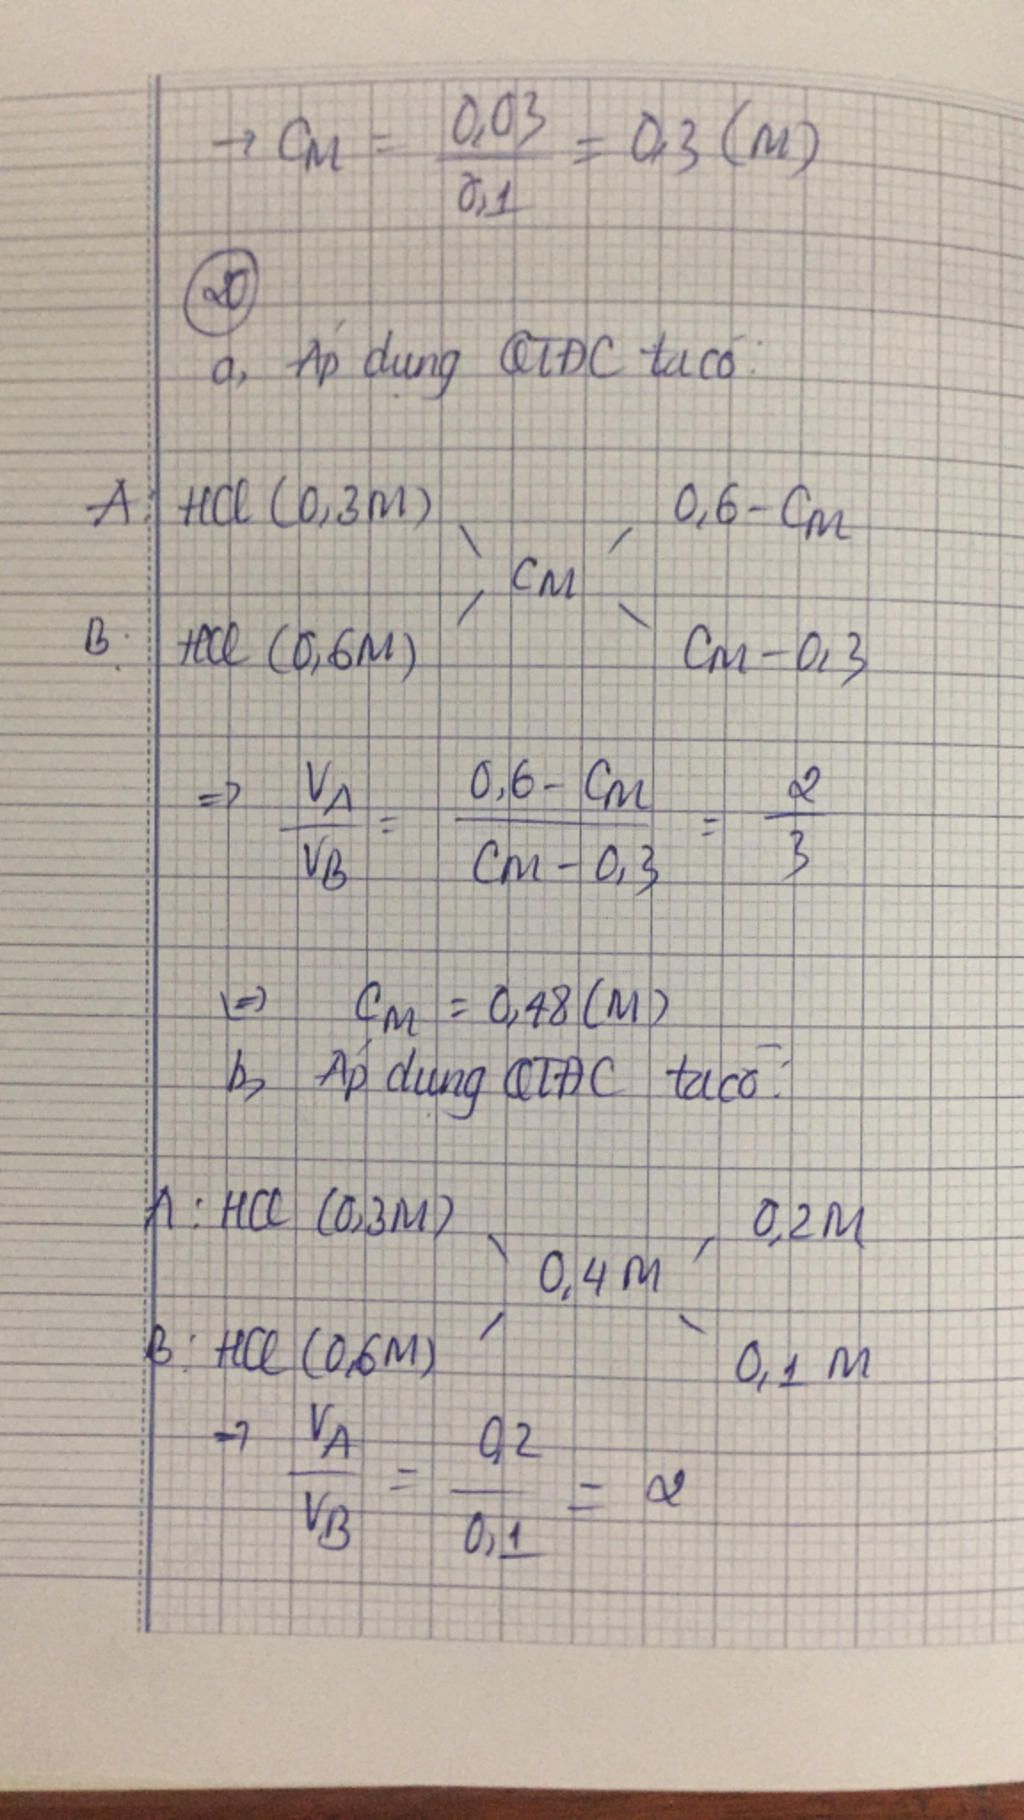 → CM = 0,03 / 0,1 = 0,3 (M)
20
a, Áp dụng QTĐC ta có:
A: HCl (0,3M) 0,6 - CM
CM
B: HCl (0,6M) CM - 0,3
=> VA / VB = 0,6 - CM / CM - 0,3 = 2 / 3
<=> CM = 0,48 (M)
b, Áp dụng QTĐC ta có:
A: HCl (0,3M) 0,2M
0,4M
B: HCl (0,6M) 0,1M
→ VA / VB = 0,2 / 0,1 = 2